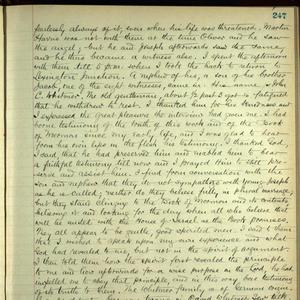 247
fearlessly always of it, even when his life was threatened. Martin
Harris was not with them at the time Oliver and he saw
the angel; but he and Joseph afterwards saw the same,
and he thus became a witness also. I spent the afternoon
with them till 5 p.m. when I took the hack to return to
Lexington Junction. A nephew of his, a son of his brother
Jacob, one of the eight witnesses, came in. His name is John
C. Whitmer. The old gentleman, about 3 p.m. got so fatigued
that he withdrew to rest. I thanked him for his kindness and
I expressed the great pleasure the interview had given me. I had
borne testimony of the truth of this work and of the Book
of Mormon since my early life, and I was glad to hear
from his own lips in the flesh his testimony. I thanked God,
I said, that he had preserved him and enabled him to bear
a faithful testimony till now and I prayed Him to still pre-
serve and assist him. I find from conversation with this
son and nephew that they do not sympathize with young Joseph
as he is called; neither do they believe fully in plural marriage,
but they stand clinging to the Book of Mormon and its contents,
believing it and looking for the day when all who believe this
will be united with the House of Israel as the Book promises.
They all appear to be quiet, good spirited men. I said to them
that I wished to speak upon my own experience and what
God had revealed to me, but not in the spirit of argument.
I then told them how the spirit first revealed the principle
to me and how afterwards for a wise purpose in God, he had
impelled me to obey that principle, and in this way bore testimony
of its truth to them. The Whitmer family is of German origin.
David Whitmer